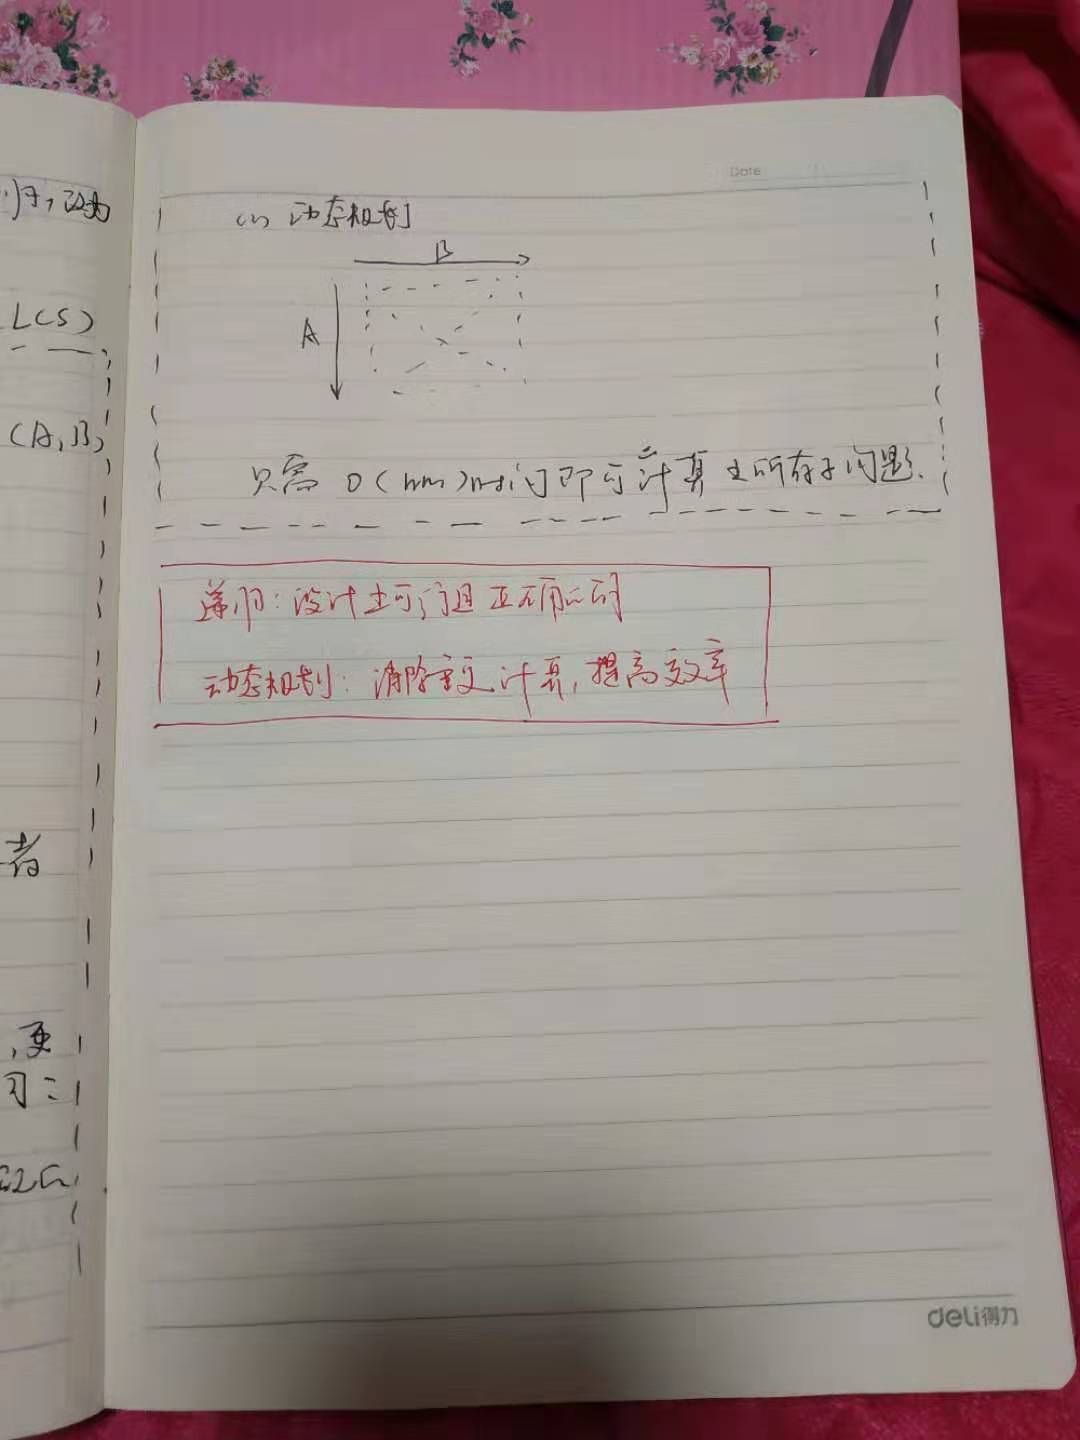 序,改为
LCS)
(A,B)
者
,更
习:
Date
(2) 动态规划
B
A
只需 O(nm)时间即可计算出所有子问题.
递归:设计出可行且正确的
动态规划:消除重复计算,提高效率
deli得力